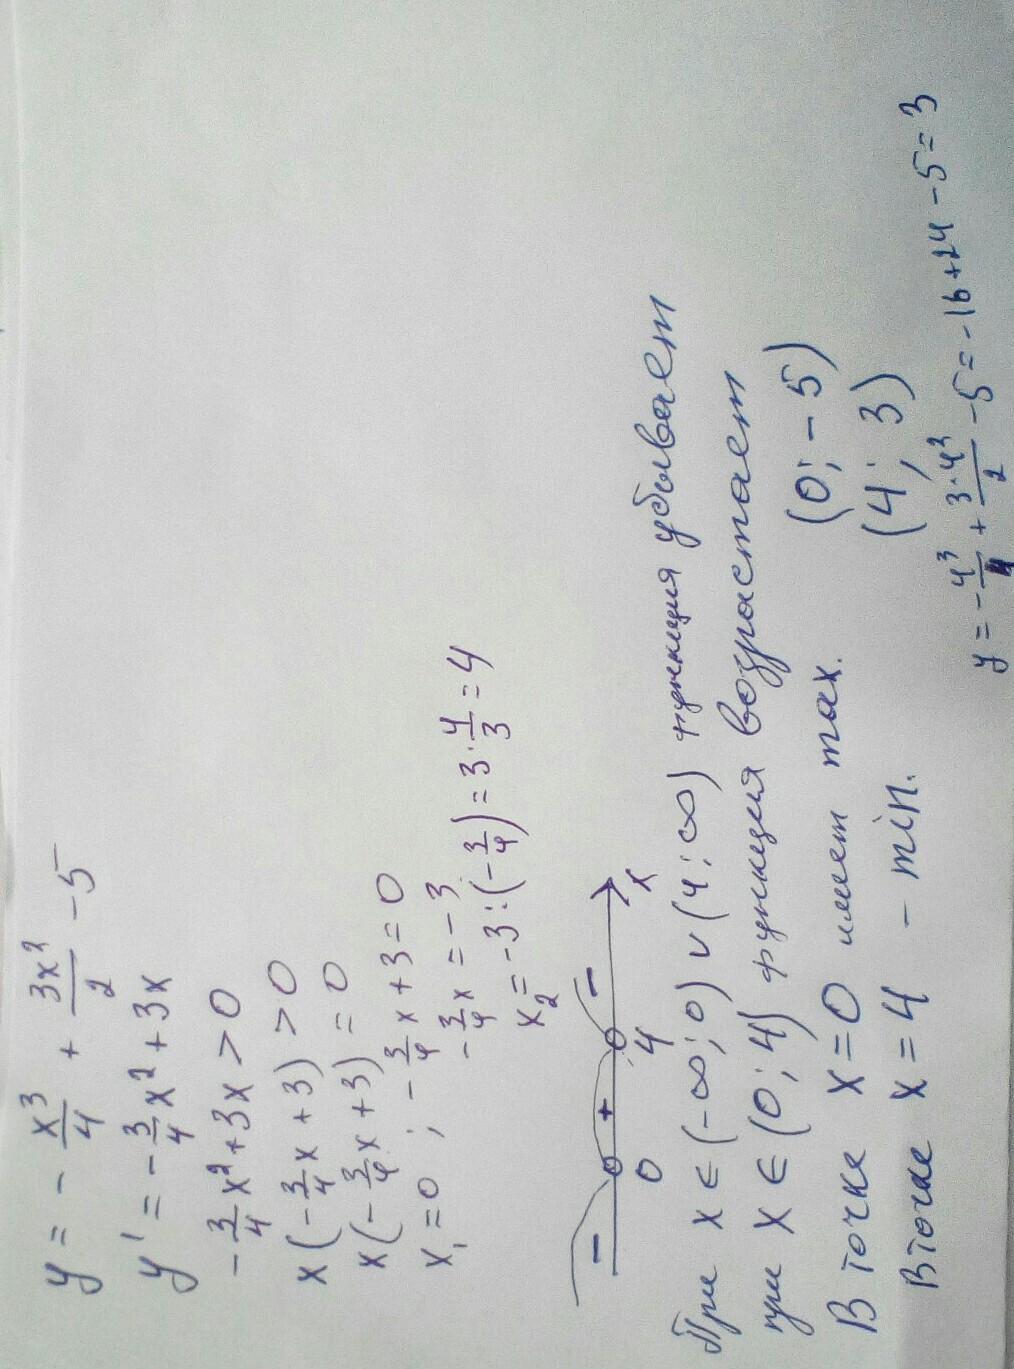 y = - x³/4 + 3x²/2 - 5
y' = - 3/4 x² + 3x
- 3/4 x² + 3x > 0
x(- 3/4 x + 3) > 0
x(- 3/4 x + 3) = 0
x₁ = 0 ; - 3/4 x + 3 = 0
- 3/4 x = - 3
x₂ = -3 : (- 3/4) = 3 · 4/3 = 4
- + -
0 4 x
При x ∈ (-∞; 0) ∪ (4; ∞) функция убывает
при x ∈ (0; 4) функция возрастает
В точке x = 0 имеет max. (0; -5)
В точке x = 4 - min. (4; 3)
y = - 4³/4 + 3·4²/2 - 5 = -16 + 24 - 5 = 3